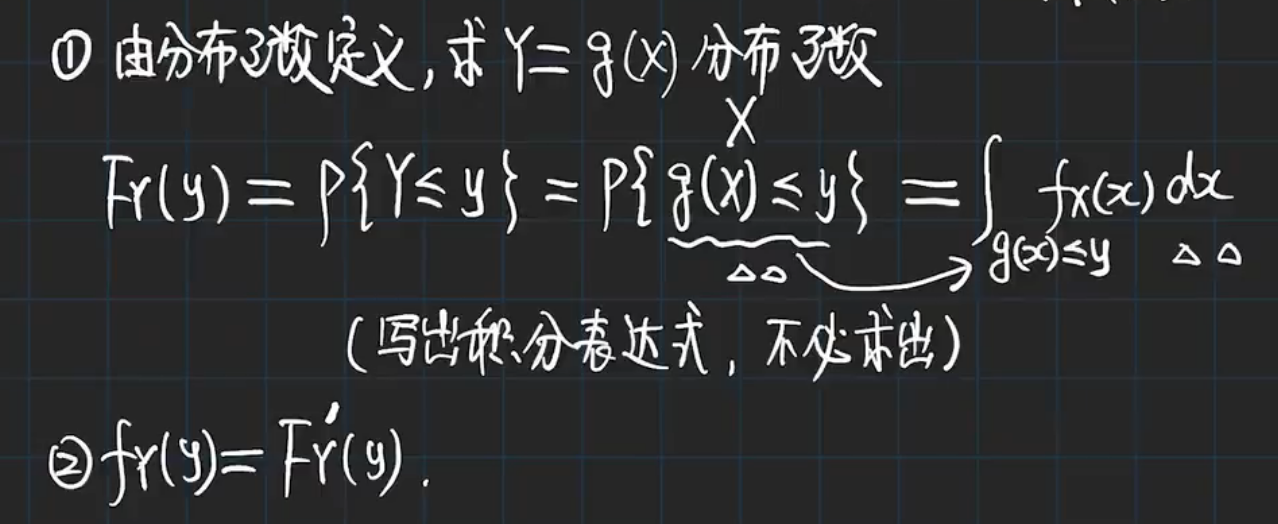 ① 由分布函数定义,求Y=g(X)分布函数
X
F_Y(y)=P{Y≤y}=P{g(X)≤y}=∫_{g(x)≤y} f_X(x)dx
△△ △△
(写出积分表达式,不必求出)
② f_Y(y)=F_Y'(y).